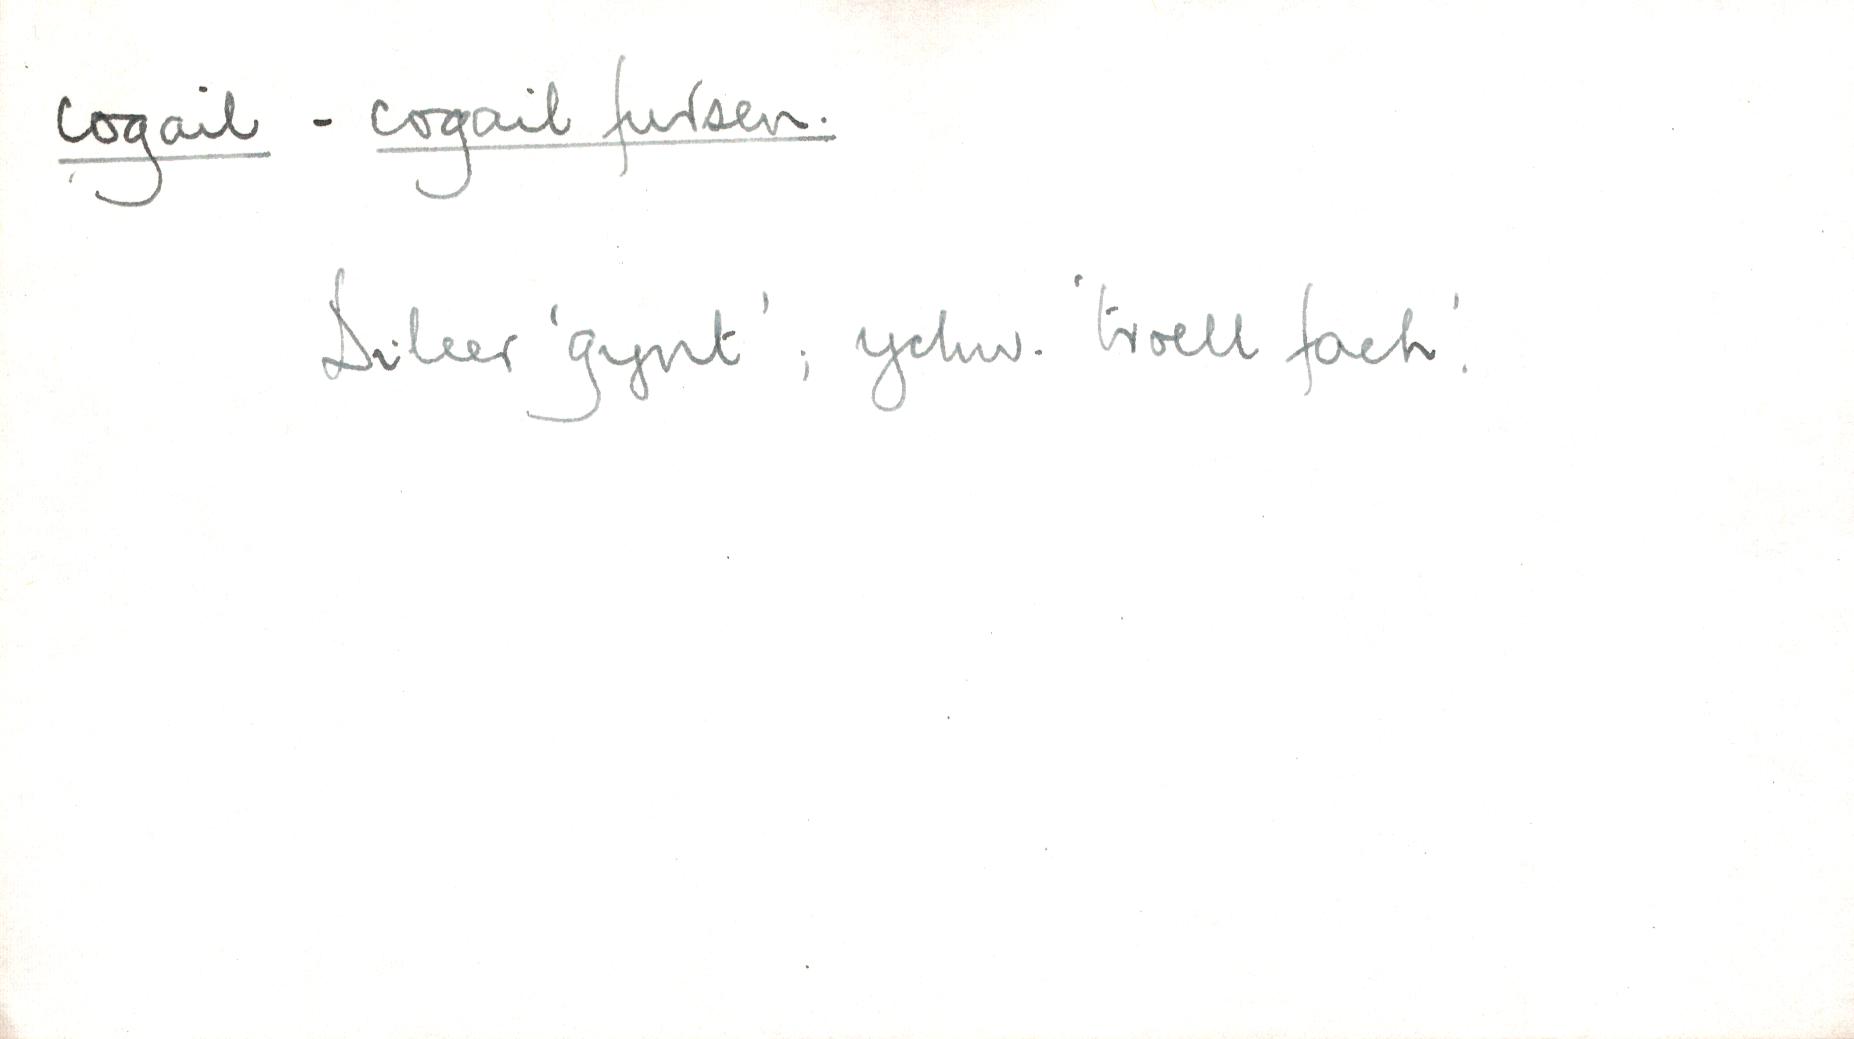 cogail - cogail fursen.
Dileer 'gynt'; ychw. 'troell fach'.